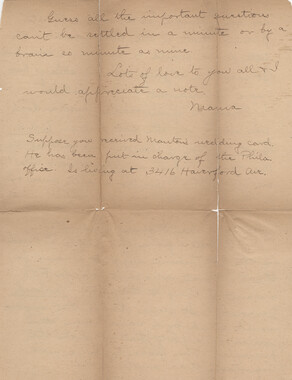 Guess all the important question
can't be settled in a minute or by a
brain as minute as mine.
Lots of love to you all & I
would appreciate a note
Mama
Suppose you received Mouton's wedding card.
He has been put in charge of the Phila
office. Is living at 3416 Haverford Ave.